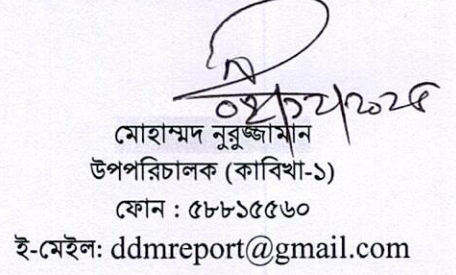 ০২/১২/২০২৫
মোহাম্মদ নুরুজ্জামান
উপপরিচালক (কাবিখা-১)
ফোন : ৫৮৮১৫৫৬০
ই-মেইল: ddmreport@gmail.com